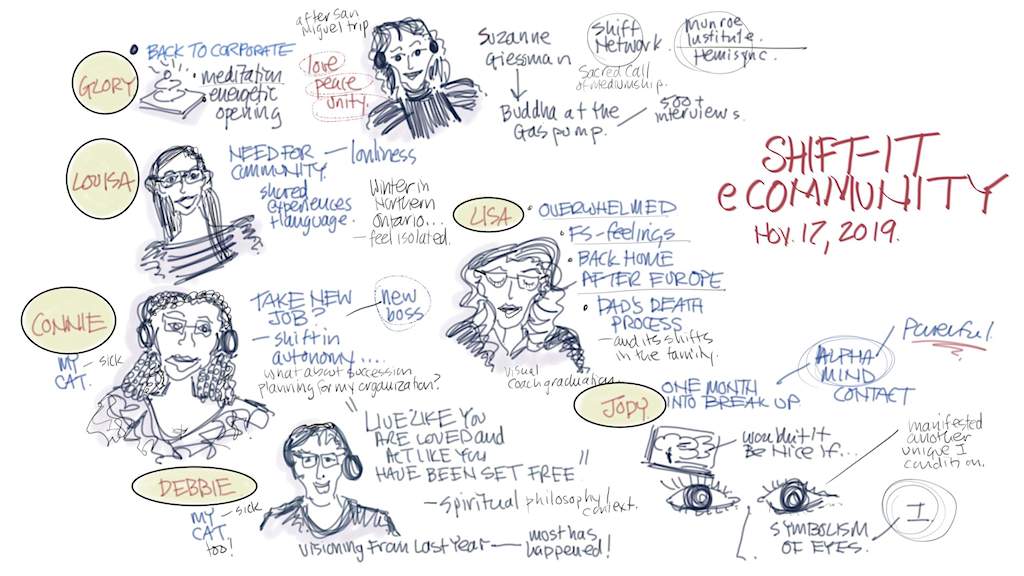 after San
Miguel trip
GLORY
BACK TO CORPORATE
meditation
energetic
opening
love
peace
unity.
Suzanne
Giessman
Shift
Network.
Munroe
Institute.
Hemisync.
Sacred Call
of mediumship.
Buddha at the
Gas pump.
500+
interviews.
SHIFT-IT
eCOMMUNITY
NOV. 17, 2019.
LOUISA
NEED FOR
COMMUNITY.
lonliness
shared
experiences
+ language.
Winter in
Northern
Ontario...
feel isolated.
LISA
OVERWHELMED
FS-feelings
BACK HOME
AFTER EUROPE
DAD'S DEATH
PROCESS
and its shifts
in the family.
visual
coach graduation
CONNIE
MY
CAT.
sick
TAKE NEW
JOB?
new
boss
shift in
autonomy....
what about succession
planning for my organization?
JODY
ONE MONTH
INTO BREAK UP
ALPHA
MIND
CONTACT
Powerful.
wouldn't it
Be Nice if...
manifested
another
unique I
condition.
SYMBOLISM
OF EYES.
I
DEBBIE
MY
CAT
too!
sick
"LIVE LIKE YOU
ARE LOVED and
ACT LIKE YOU
HAVE BEEN SET FREE"
spiritual philosophy/
context.
VISIONING FROM LAST YEAR
most has
happened!